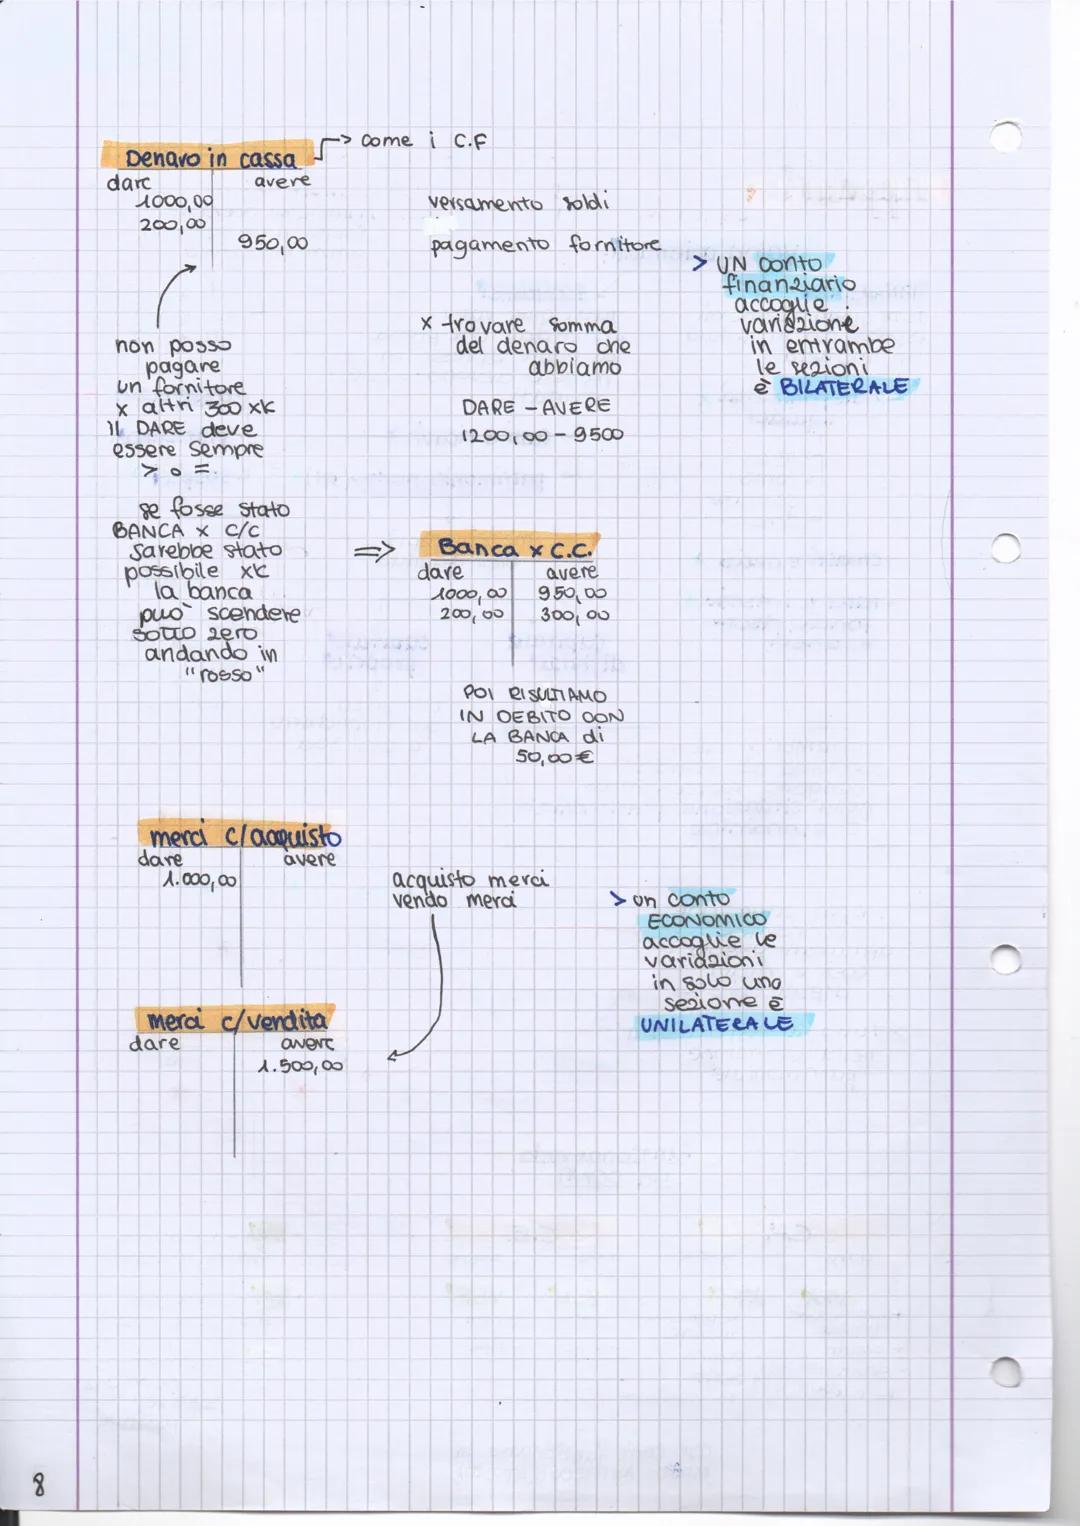 Denaro in cassa
-> come i C.F
dare avere
1000,00
200,00
950,00
versamento soldi
pagamento fornitore
> UN conto
finanziario
accoglie
variazione
in entrambe
le sezioni
è BILATERALE
x trovare somma
del denaro che
abbiamo
DARE - AVERE
1200,00 - 9500
non posso
pagare
un fornitore
x altri 300 xk
Il DARE deve
essere sempre
> o =
se fosse stato
BANCA x c/c
sarebbe stato
possibile xk
la banca
può scendere
sotto zero
andando in
"rosso"
=> Banca x C.C.
dare avere
1000,00 950,00
200,00 300,00
POI RISULTIAMO
IN DEBITO CON
LA BANCA di
50,00€
merci c/acquisto
dare avere
1.000,00
acquisto merci
vendo merci
> un conto
ECONOMICO
accoglie le
variazioni
in solo una
sezione è
UNILATERALE
merci c/vendita
dare avere
1.500,00
8